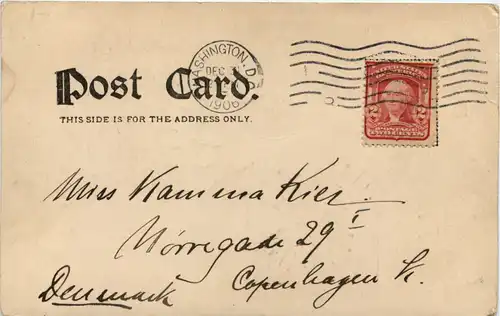 WASHINGTON, D.
DEC
1906
Post Card.
THIS SIDE IS FOR THE ADDRESS ONLY.
2 2
POSTAGE
TWO CENTS
Miss Kamma Kier
Nörregade 29 I
Copenhagen K.
Denmark